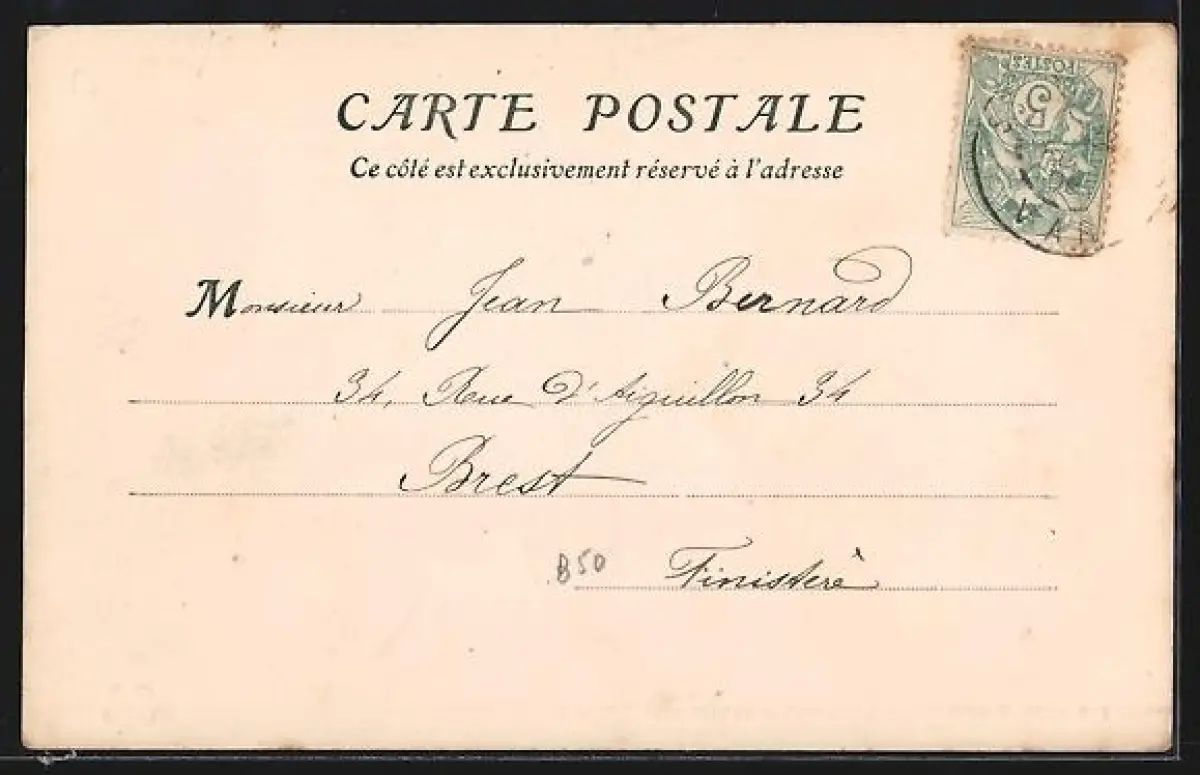 CARTE POSTALE
Ce côté est exclusivement réservé à l'adresse
POSTES
5c
Monsieur Jean Bernard
34, Rue d'Aiguillon 34
Brest
B50 Finistère